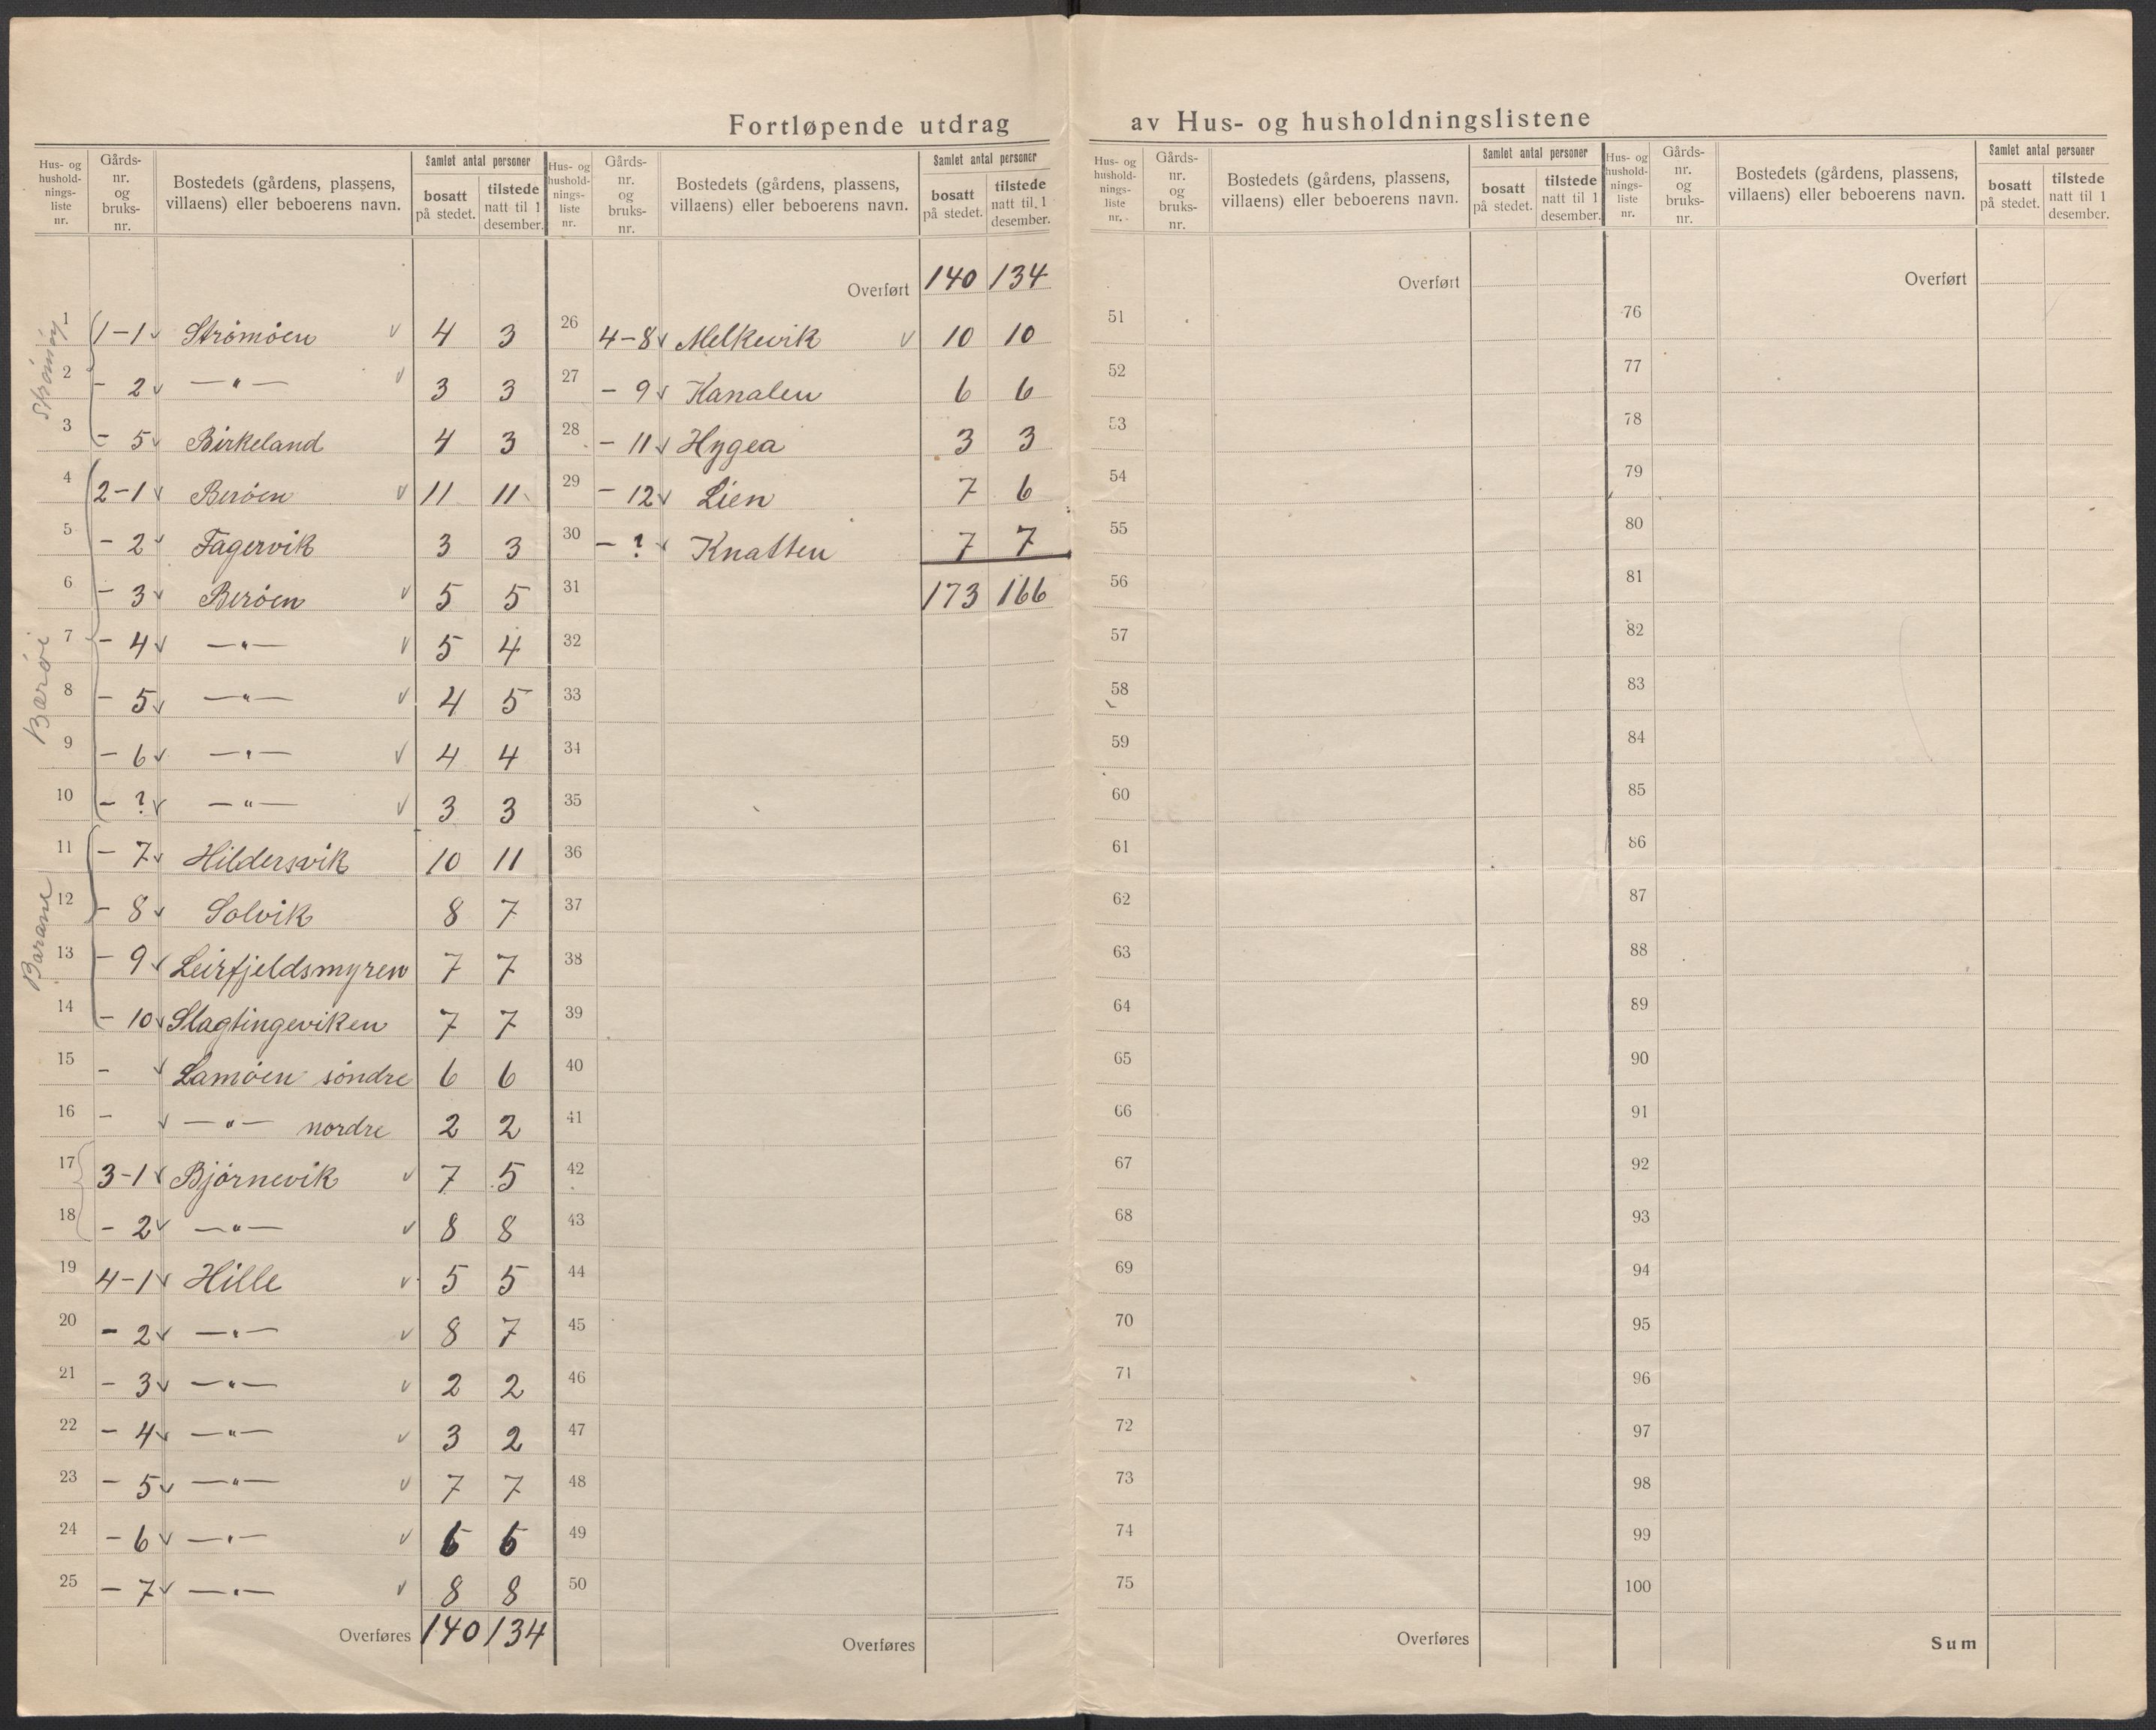 Fortløpende utdrag av Hus- og husholdningslistene
Hus- og hushold-nings-liste nr. | Gårds-nr. og bruks-nr. | Bostedets (gårdens, plassens, villaens) eller beboerens navn. | Samlet antal personer | bosatt på stedet. | tilstede natt til 1 desember.
Strømøy
1 | 1-1 | Strømöen | 4 | 3
2 | - 2 | —"— | 3 | 3
3 | - 5 | Birkeland | 4 | 3
Barøi
4 | 2-1 | Beröen | 11 | 11
5 | - 2 | Fagervik | 3 | 3
6 | - 3 | Beröen | 5 | 5
7 | - 4 | —"— | 5 | 4
8 | - 5 | —"— | 4 | 5
9 | - 6 | —"— | 4 | 4
10 | - ? | —"— | 3 | 3
Barane
11 | - 7 | Hildersvik | 10 | 11
12 | - 8 | Solvik | 8 | 7
13 | - 9 | Leirfjeldsmyren | 7 | 7
14 | - 10 | Slagtingeviken | 7 | 7
15 | - | Lamöen söndre | 6 | 6
16 | - | —"— nordre | 2 | 2
17 | 3-1 | Bjørnevik | 7 | 5
18 | - 2 | —"— | 8 | 8
19 | 4-1 | Hille | 5 | 5
20 | - 2 | —"— | 8 | 7
21 | - 3 | —"— | 2 | 2
22 | - 4 | —"— | 3 | 2
23 | - 5 | —"— | 7 | 7
24 | - 6 | —"—
25 | - 7 | —"— | 8 | 8
Overføres | 140 | 134
Hus- og hushold-nings-liste nr. | Gårds-nr. og bruks-nr. | Bostedets (gårdens, plassens, villaens) eller beboerens navn. | Samlet antal personer | bosatt på stedet. | tilstede natt til 1 desember.
Overført | 140 | 134
26 | 4-8 | Melkevik | 10 | 10
27 | - 9 | Kanalen | 6 | 6
28 | - 11 | Hygea | 3 | 3
29 | - 12 | Lien | 7 | 6
30 | - ? | Knatten | 7 | 7
31 | 173 | 166
32
33
34
35
36
37
38
39
40
41
42
43
44
45
46
47
48
49
50
Overføres
Hus- og hushold-nings-liste nr. | Gårds-nr. og bruks-nr. | Bostedets (gårdens, plassens, villaens) eller beboerens navn. | Samlet antal personer | bosatt på stedet. | tilstede natt til 1 desember.
Overført
51
52
53
54
55
56
57
58
59
60
61
62
63
64
65
66
67
68
69
70
71
72
73
74
75
Overføres
Hus- og hushold-nings-liste nr. | Gårds-nr. og bruks-nr. | Bostedets (gårdens, plassens, villaens) eller beboerens navn. | Samlet antal personer | bosatt på stedet. | tilstede natt til 1 desember.
Overført
76
77
78
79
80
81
82
83
84
85
86
87
88
89
90
91
92
93
94
95
96
97
98
99
100
Sum